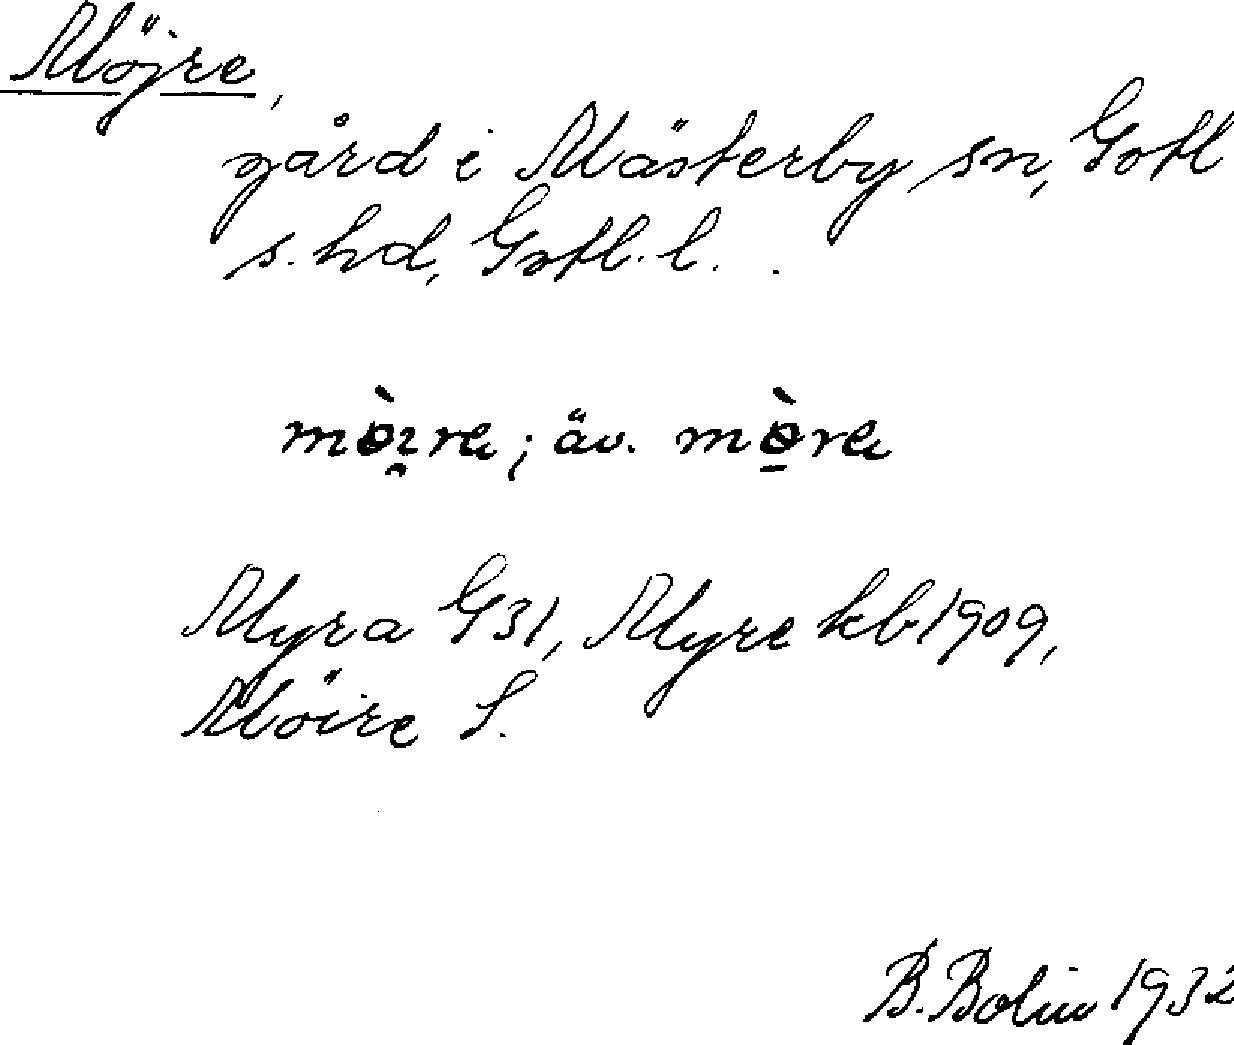 Möjre,
gård i Mästerby sn, Gotl
s. hd, Gotl. l.
mòi̯re; äv. mò̠re
Myra G31, Myre kb 1909,
Möire S.
B. Bolin 1932